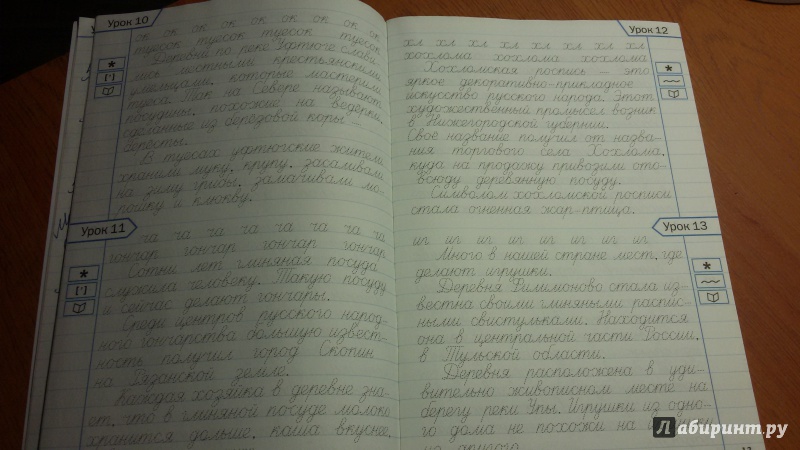 Урок 10
ок ок ок ок ок ок ок ок ок
туесок туесок туесок туесок
Деревни по реке Уфтюге слави-
лись местными крестьянскими
умельцами, которые мастерили
туеса. Так на Севере называют
посудины, похожие на ведерки,
сделанные из березовой коры -
бересты.
В туесах уфтюгские жители
хранили муку, крупу, засаливали
на зиму грибы, замачивали мо-
рошку и клюкву.
Урок 11
ча ча ча ча ча ча ча ча
гончар гончар гончар гончар
Сотни лет глиняная посуда
служила человеку. Такую посуду
и сейчас делают гончары.
Среди центров русского народ-
ного гончарства большую извест-
ность получил город Скопин
на Рязанской земле.
Каждая хозяйка в деревне зна-
ет, что в глиняной посуде молоко
хранится дольше, каша вкуснее,
Урок 12
хл хл хл хл хл хл хл хл
хохлома хохлома хохлома
Хохломская роспись – это
яркое декоративно-прикладное
искусство русского народа. Этот
художественный промысел возник
в Нижегородской губернии.
Своё название получил от назва-
ния торгового села Хохлома,
куда на продажу привозили ото-
всюду деревянную посуду.
Символом хохломской росписи
стала огненная жар-птица.
Урок 13
иг иг иг иг иг иг иг иг
Много в нашей стране мест, где
делают игрушки.
Деревня Филимоново стала из-
вестна своими глиняными распис-
ными свистульками. Находится
она в центральной части России,
в Тульской области.
Деревня расположена в уди-
вительно живописном месте на
берегу реки Упы. Игрушки из одно-
го дома не похожи на игрушки
из другого.
Лабиринт.ру